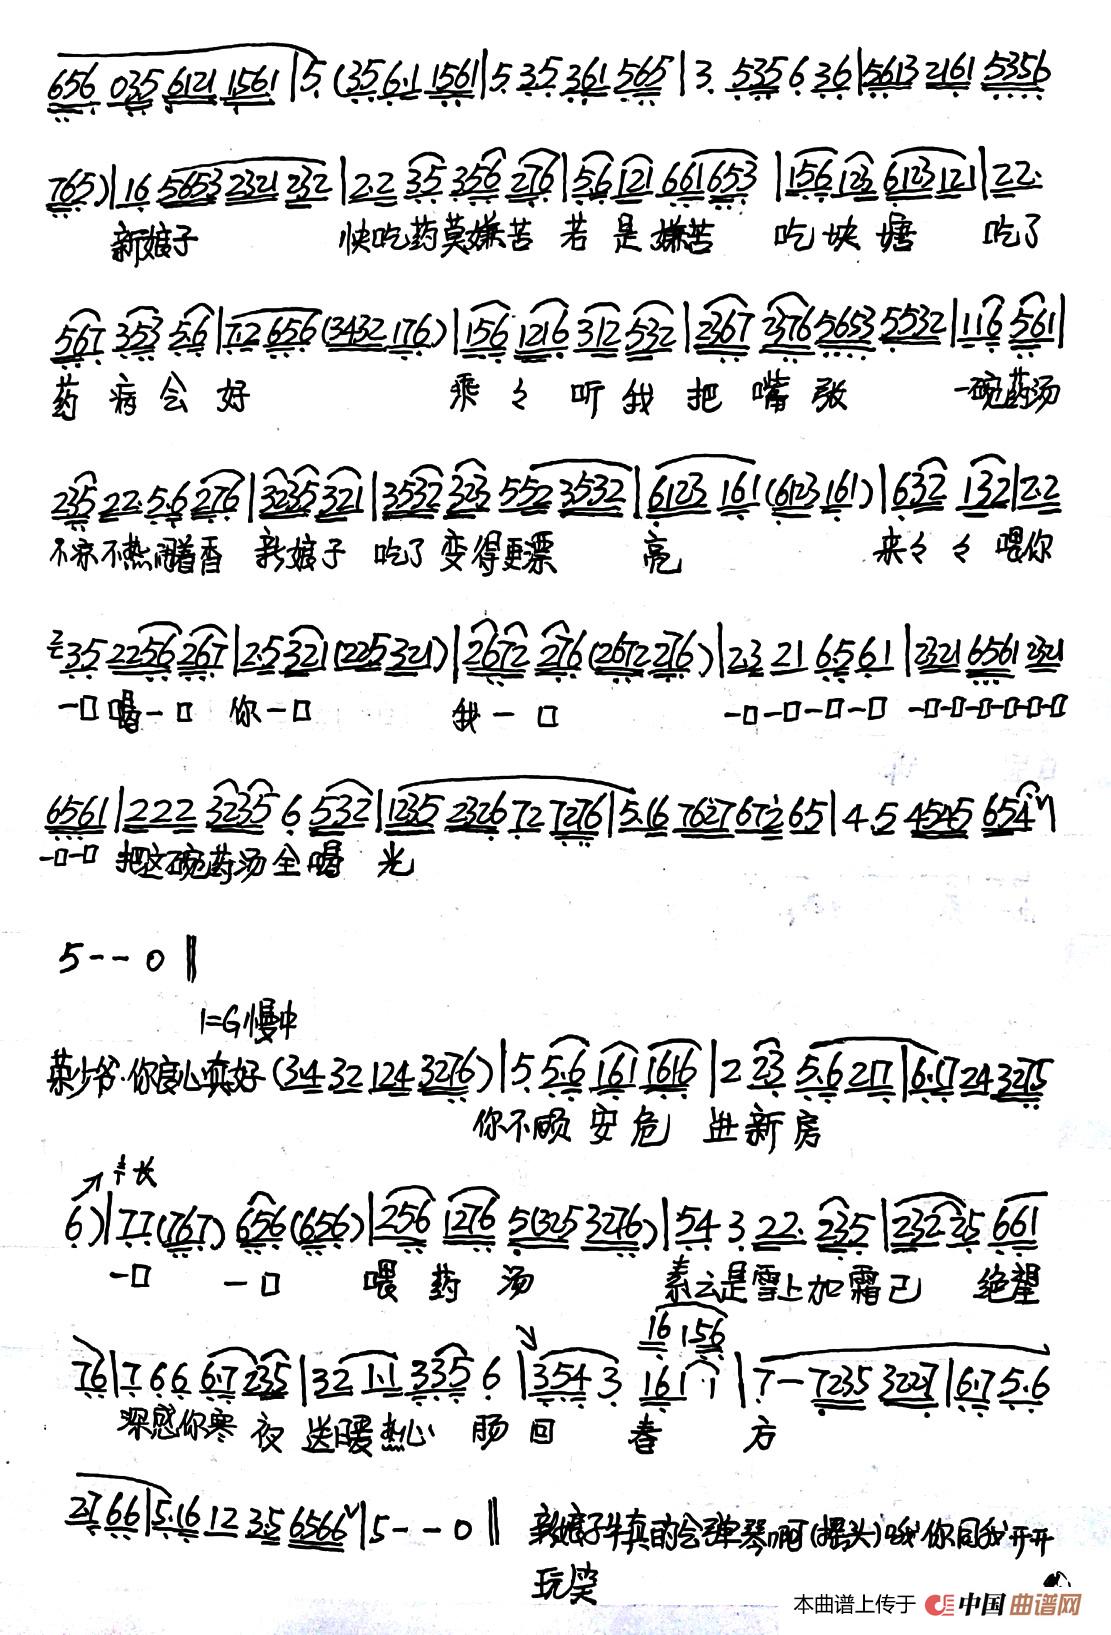 656 035 6121 1561 | 5. (35 6.1 1561 | 5. 35 361 565 | 3. 535 6 36 | 5613 2161 5356
765) | 16 5653 2321 232 | 2.2 35 356 276 | 56 121 661 653 | 156 123 6123 121 | 22.
新娘子 快吃药莫嫌苦 若是嫌苦 吃块糖 吃了
567 353 5.6 | 72 656 (3432 176.) | 156 1216 312 532 | 2367 2376 5653 5532 | 116 561 |
药病会好 乖々听我把嘴张 一碗药汤
235 22. 5.6 276 | 3235 321 | 3532 323 552 3532 | 6123 161 (6123 161) | 632 132 | 2.2
不凉不热闻着香 新娘子 吃了变得更漂亮 来々々喂你
35 2256 267 | 2.5 321 (225 321) | 2672 276 (2672 276) | 23 21 6.5 61 | 2321 6561 2321
一口 喝一口 你一口 我一口 一口一口一口一口 一口一口一口一口一口
6561 | 222 3235 6 532 | 1235 2326 72 7276 | 5.16 7627 672 65 | 4.5 4545 654
一口一口 把这碗药汤全喝光
5 - - 0 ‖
1=G 慢中
荣少爷.你良心真好 (3.4 32 124 3276) | 5. 5.6 161 1616 | 2 23 5.6 27 | 6.17 24 3275
你不顾安危进新房
半长
6) | 77 (767) 656 (656) | 256 1276 5 (325 3276) | 54 3 22. 235 | 232 25 661
一口 一口 喂药汤 素云是雪上加霜已绝望
16 156
76 | 7 66 6.7 235 | 32 1.1 335 6 | 354 3 161 1 | 7 - 7235 3227 | 6.7 5.6
深感你寒夜送暖热心肠回春方
27 66 | 5.16 12 3.5 6566 | 5 - - 0 ‖ 新娘子牛真的会弹琴啊(摇头)哦 你同我开开
玩笑
本曲谱上传于 中国曲谱网